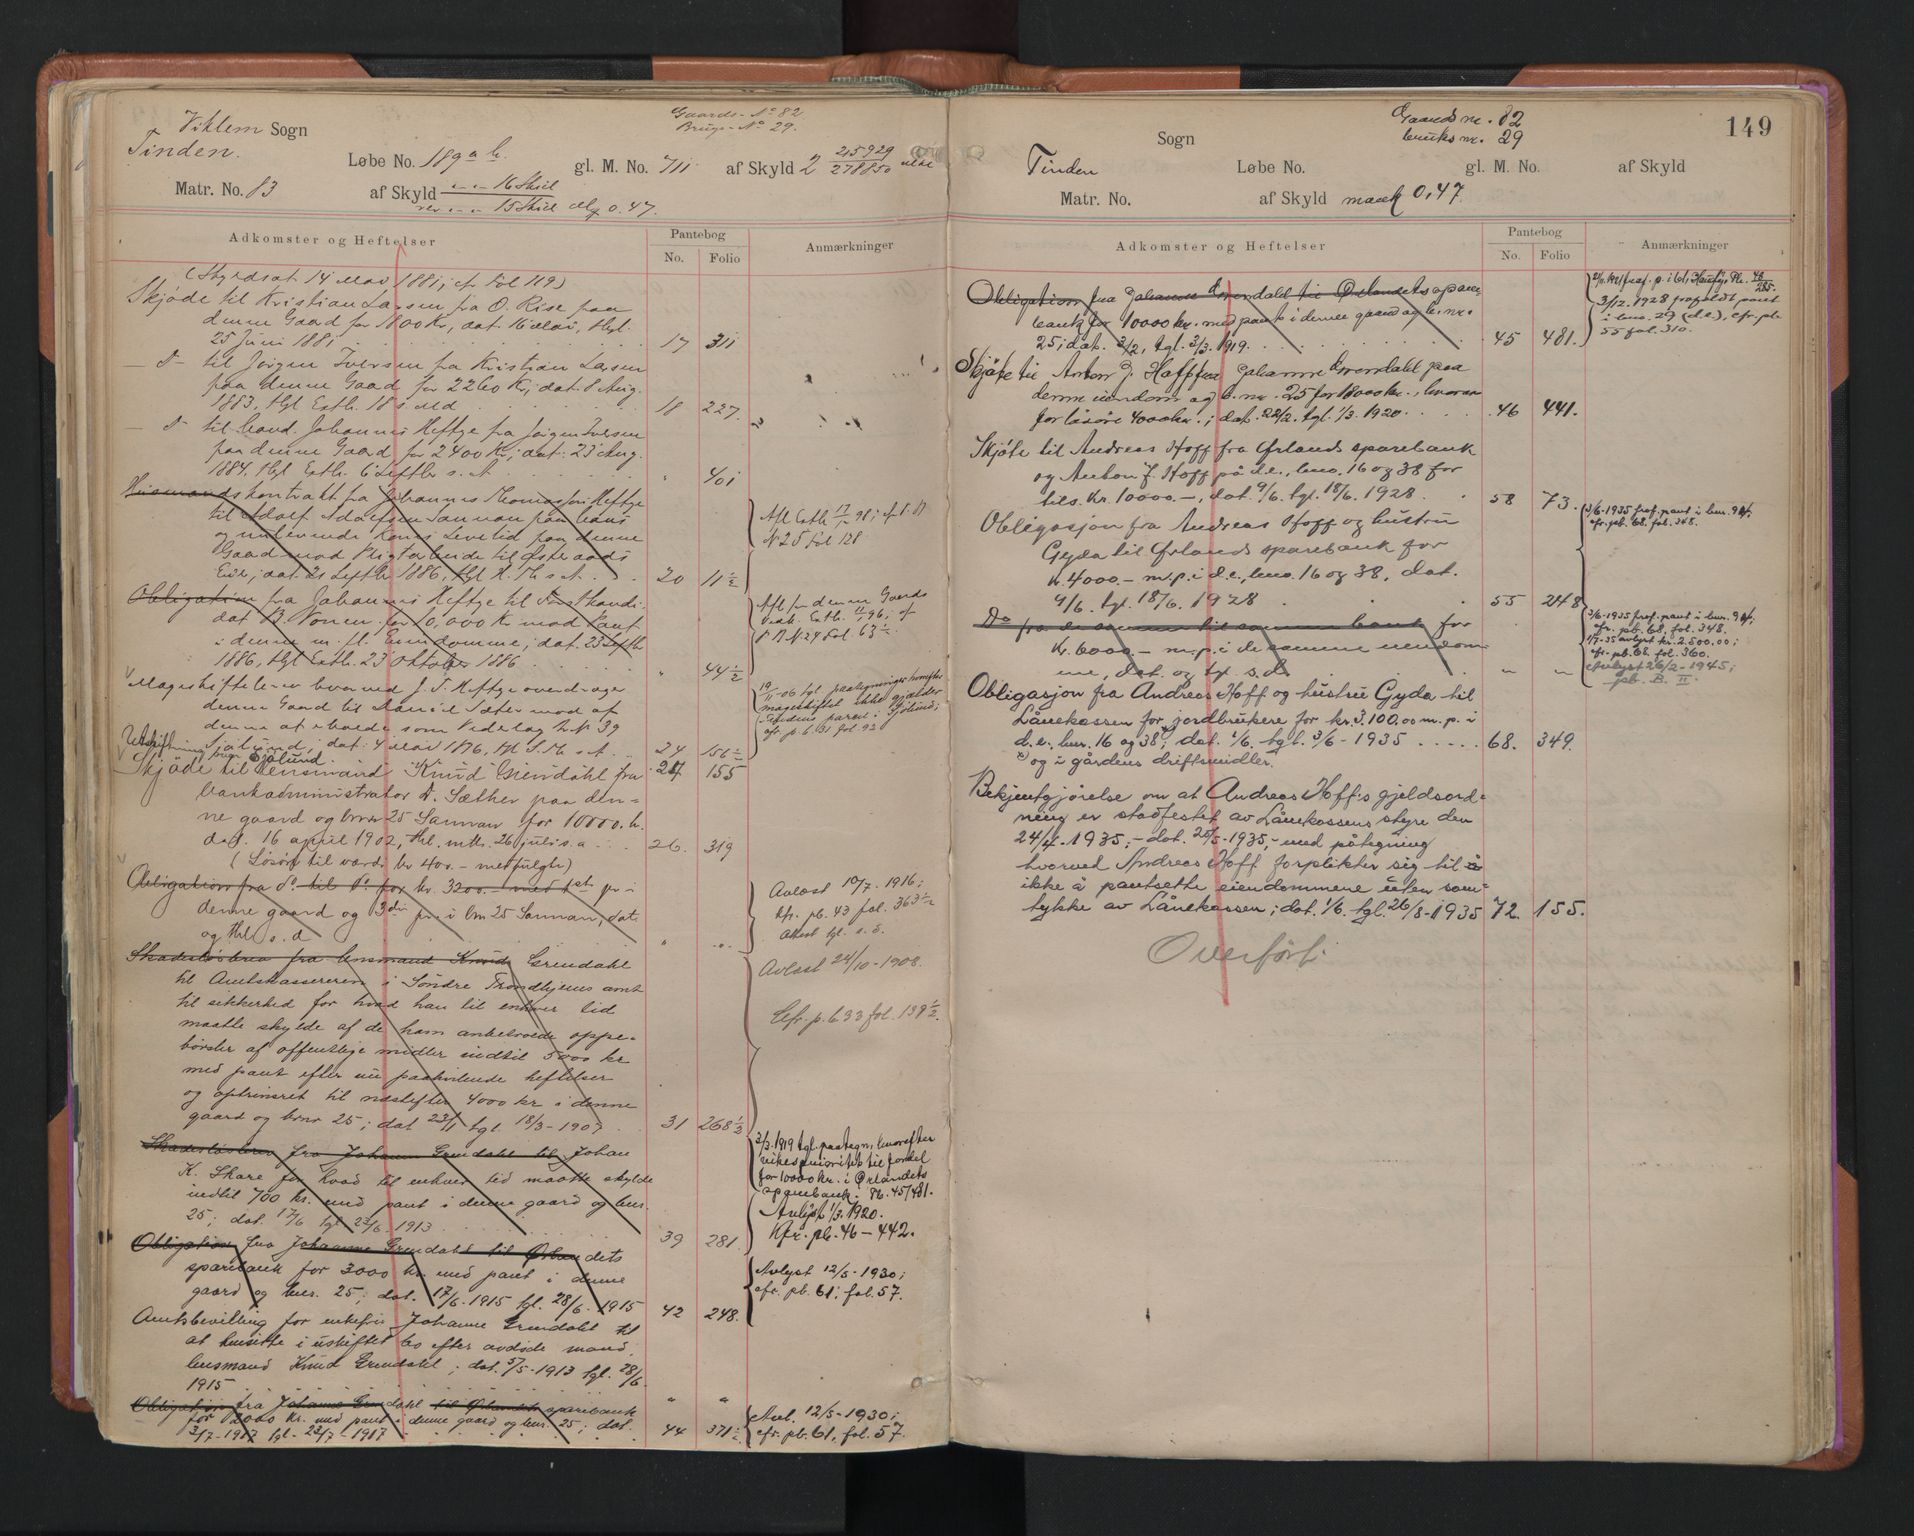 Viklem Sogn
Gaards-No 82
Brugs-No 29.
Tinden.
Løbe No. 189 a b. gl. M. No. 711 af Skyld 2
Matr. No. 83 af Skyld 16 Skil
rev 15 Skil Mk 0.47.
Adkomster og Heftelser
Pantebog
No. Folio
Anmærkninger
(Skyldsat 14 Mai 1881, cf Fol 119)
Skjøde til Kristian Larsen fra O. Rise paa
denne Gaard for 1800 Kr, dat. 16 Mai, thgl.
25 Juni 1881 17 311
— d° — til Jørgen Iversen fra Kristian Larsen
paa denne Gaard for 2260 Kr, dat. 8 Aug.
1883, tgl Extb. 18 s. Md 18 227.
— d° — til Cand. Johannes Heftye fra Jørgen Iversen
paa denne Gaard for 2400 Kr, dat. 23 Aug.
1884. thgl Extb. 6 Septbr s. A " 401
Husmandskontrakt fra Johannes Thomassen Heftye
til Adolf Adolfsen Sannan paa hans
og nulevende Kones Levetid paa denne
Gaard mod Pligtarbeide til Østeraads
Eier; dat. 21 Septbr 1886, thgl H. Th s. A. 20 11½
Afl Extb 17/1 98; cf P. B
N 25 Fol 128
Obligation fra Johannes Heftye til
dat B. Nonen for 10,000 Kr mod Pant
i denne m. fl. Eiendomme; dat. 23 Septb
1886, thgl Extb. 23 Oktober 1886 " 44½
Afl for denne Gaards
Vedk. Extb. 96; cf
P B N 24 Fol 63½
Mageskiftebrev hvorved J. T. Heftye overdrager
denne Gaard til Daniel Sæter mod af
denne at erholde som Vederlag Br. N. 39
Sjølund, dat. 4 Mai 1896, thgl S. Th s. A. 24 156½
19/11-06 tgl. paategning hvorefter
mageskiftet ikke gjælder
Tindens parcel i Sjølund;
cfr. p. b. 31 fol 92
Udskiftning Sjølund 24 155
Skjøde til Lensmand Knud Grendahl fra
bankadministrator D. Sæther paa den-
ne gaard og brnr 25 Sannan for 10000. kr.
dat. 16 april 1902, thl. mtb. 26 juli s. a 26. 319
(Løsøre til værdi kr 400.- medfulgte)
Obligation fra d° til d° for kr. 3200.- med 1st pr- i
denne gaard og 3die pr. i bn 25 Sannan, dat.
og thl s. d " "
Avløst 10/7-1916;
kfr. pb. 43 fol. 363½
Attest tgl. s. d.
Skadesløsbrev fra lensmand Knud Grendahl
til Amtskassereren i Søndre Trondhjems amt
til sikkerhed for hvad han til enhver tid
maatte skylde af de ham anbetroede oppe-
børsler af offentlige midler indtil 5000 kr
med pant efter nu paahvilende heftelser
og optrinsret til næstefter 4000 kr i denne
gaard og brnr 25; dat 23/1 tgl. 18/3-1907 31 268½
Avløst 24/10-1908.
Cfr. p. b 33 fol. 139½.
Skadesløsbrev fra Johanne Grendahl til Johan
K. Skare for hvad til enhver tid maatte skylde
indtil 700 kr. med pant i denne gaard og bnr.
25; dat. 17/6 tgl 23/6-1913 39 281
3/3. 1919 tgl. paategn., hvorefter
vikes prioritet til fordel
for 10000 kr. i Ørlandets
sparebank. Pb. 45/481.
Avlyst 1/3. 1920.
Kfr. pb. 46-442.
Obligation fra Johanne Grendahl til Ørlandets
sparebank for 3000 kr. med pant i denne
gaard og bnr. 25; dat. 17/6-1915 tgl. 28/6-1915 42 248.
Avlyst 12/5-1930;
cfr. pb. 61; fol. 57.
Amtsbevilling for enkefru Johanne Grendahl til
at hensitte i uskiftet bo efter avdøde mand,
lensmand Knud Grendahl; dat. 5/5-1913 tgl. 28/6.
1915 " "
Obligation fra Johanne Grendahl til Ørlandets sparebank
for 2000 kr. med pant i denne gaard og bnr. 25; dat.
3/7-1917 tgl. 23/7-1917 44 371½
Avl. 12/5-1930;
cfr. pb. 61, fol. 57.
149
Gaards nr. 82
bruks nr. 29
Sogn
Tinden Løbe No. gl. M. No. af Skyld
Matr. No. af Skyld mark 0,47
Adkomster og Heftelser
Pantebog
No. Folio
Anmærkninger
Obligation fra Johanne Grendahl til Ørlandets spare-
bank for 10000 kr. med pant i denne gaard og b. nr.
25; dat. 3/2, tgl. 3/3. 1919. 45 481.
3/12. 1928 frafaldt pant
i bnr. 29 (d.e.), cfr. pb.
55 fol. 310.
Skjøte til Anton J. Hoff fra Johanne Grendahl paa
denne eiendom og b. nr. 25 for 18000 kr., hvorav
for løsøre 4000 kr.; dat. 22/2. tgl. 1/3. 1920. 46 441.
Skjøte til Andreas Hoff fra Ørlands sparebank
og Anton J. Hoff på d.e., bno. 16 og 38 for
tils. Kr. 10000.-, dat. 9/6. tgl. 18/6. 1928. 58 73.
Obligasjon fra Andreas Hoff og hustru
Gyda til Ørlands sparebank for
Kr. 4000.- m.p. i d.e., bno. 16 og 38, dat.
9/6. tgl. 18/6. 1928 55 248
3/6-1935 prof. pant i bnr. 94;
cfr. pb. 68. fol. 348.
Do fra de samme til samme bank for
Kr. 6000.- m.p. i de samme eiendom-
me, dat. og tgl. s.d. " "
3/6-1935 prof. pant i bnr. 94;
cfr. pb. 68, fol. 348.
1/7-35 avlyst kr. 2.500.00;
cfr. pb. 68. fol. 360.
Avlyst 26/2-1945;
pb. B. II.
Obligasjon fra Andreas Hoff og hustru Gyda til
Lånekassen for jordbrukere for kr. 3.100.00 m. p. i
d.e., bnr. 16 og 38 x); dat. 1/6. tgl. 3/6-1935 68. 349.
x) og i gårdens driftsmidler.
Bekjentgjørelse om at Andreas Hoff's gjeldsord-
ning er stadfestet av Lånekassens styre den
24/4-1935; - dat. 25/5-1935, - med påtegning
hvorved Andreas Hoff forplikter sig til å
ikke å pantsette eiendommene uten sam-
tykke av Lånekassen; dat. 1/6. tgl. 26/8-1935 72. 155.
Overført: